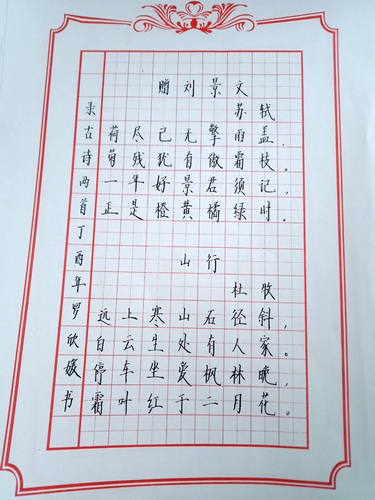 赠刘景文
苏轼
荷尽已无擎雨盖，
菊残犹有傲霜枝。
一年好景君须记，
正是橙黄橘绿时。
山行
杜牧
远上寒山石径斜，
白云生处有人家。
停车坐爱枫林晚，
霜叶红于二月花。
录古诗两首丁酉年罗欣媛书